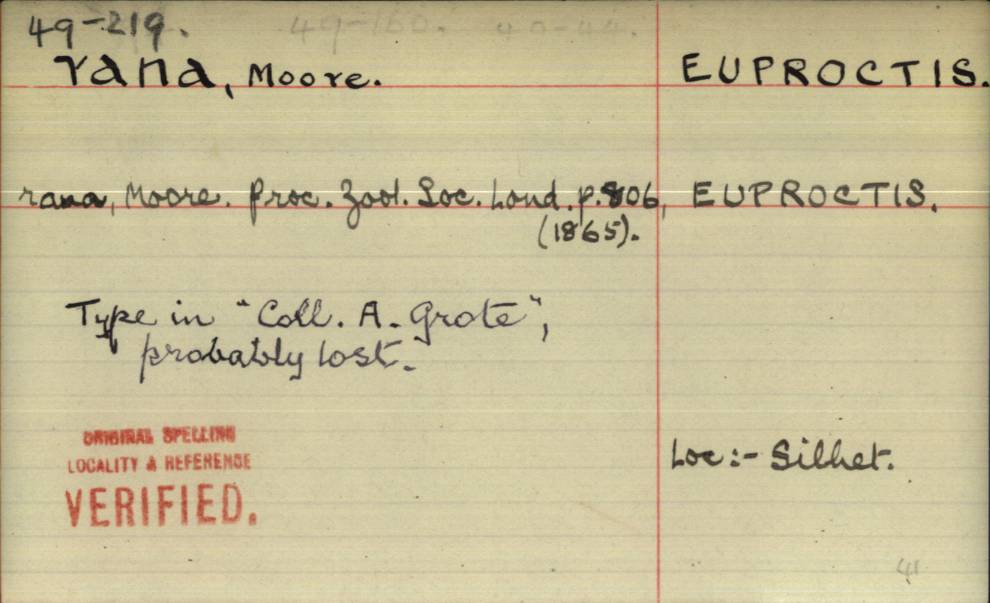 49-219.
rana, Moore. EUPROCTIS.
rana, Moore. Proc. Zool. Soc. Lond. p.806, EUPROCTIS.
(1865).
Type in "Coll. A. Grote",
probably lost.
ORIGINAL SPELLING
LOCALITY & REFERENCE
VERIFIED.
Loc:- Silhet.
41